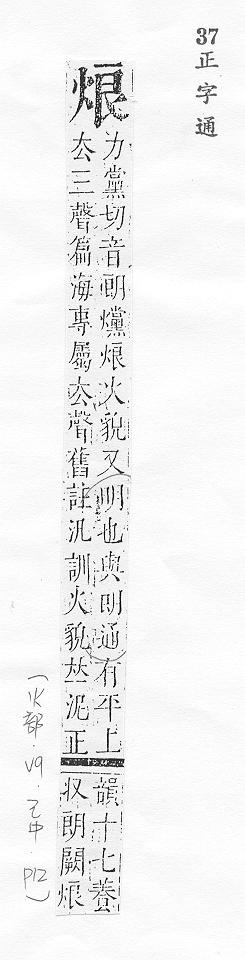 37 正字通
烺
力黨切音朗爣烺火貌又明也與朗通有平上
厺三聲篇海專屬厺聲舊註汎訓火貌𠀤泥正
韻十七養
収朗闕烺
(火部．V9．巳中 P12)